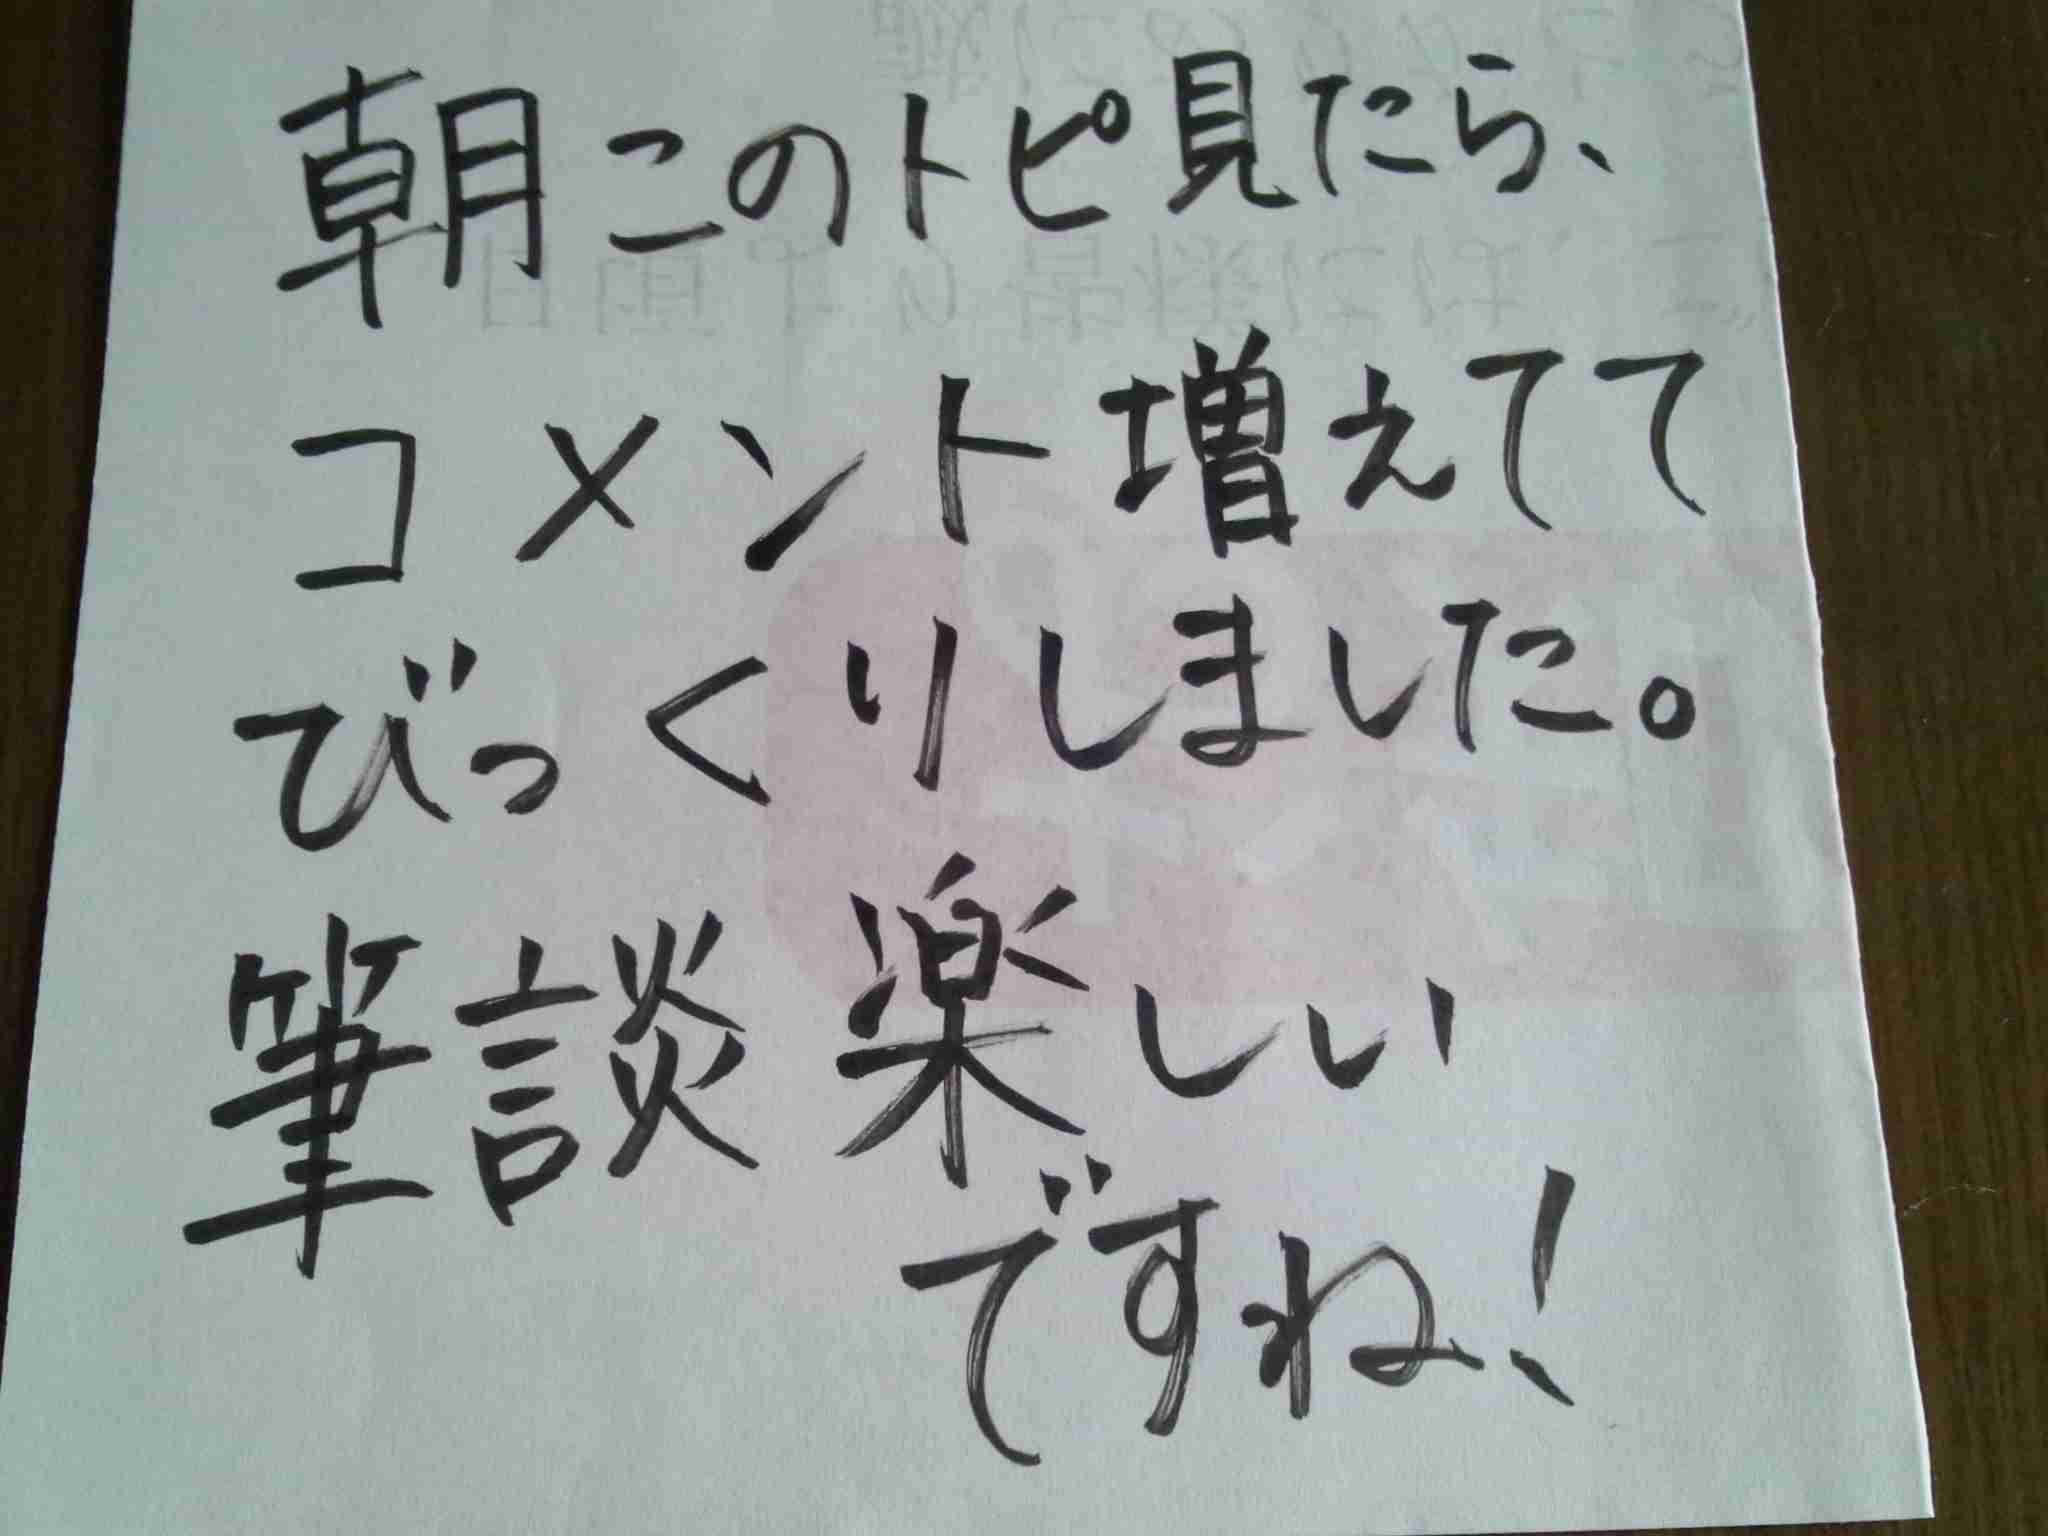 朝このトピ見たら、
コメント増えてて
びっくりしました。
筆談楽しい
ですね!